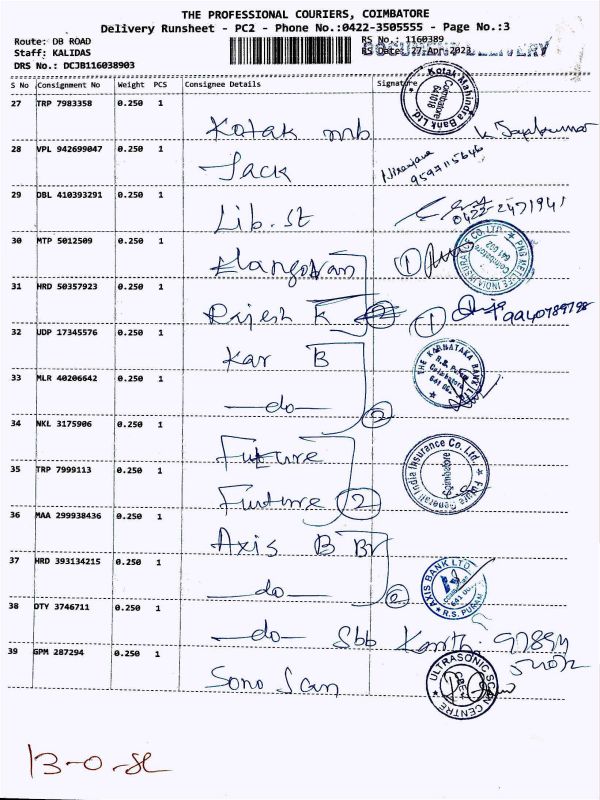 THE PROFESSIONAL COURIERS, COIMBATORE
Delivery Runsheet - PC2 - Phone No.:0422-3505555 - Page No.:3
Route: DB ROAD
Staff: KALIDAS
DRS No.: DCJB116038903
RS No.: 1160389
RS Date: 27 Apr 2023
S No Consignment No Weight PCS Consignee Details Signature
27 TRP 7983358 0.250 1 Kotak mb
Kotak Mahindra Bank Ltd. Coimbatore 641018
K. Jayakumar
28 VPL 942699047 0.250 1 Jack
Niranjana
9597115646
29 DBL 410393291 0.250 1 Lib. St
0422-2471941
30 MTP 5012509 0.250 1 Elangovan
1
PNB METLIFE INDIA INSURANCE CO. LTD. Coimbatore 641 002
31 HRD 50357923 0.250 1 Rajesh K
1
9940789798
32 UDP 17345576 0.250 1 Kar B
THE KARNATAKA BANK R.S. Puram Coimbatore
33 MLR 40206642 0.250 1 —do— 2
34 NKL 3175906 0.250 1 Future
Future Generali India Insurance Co. Ltd. Coimbatore
35 TRP 7999113 0.250 1 Future 2
36 MAA 299938436 0.250 1 Axis B Br
37 HRD 393134215 0.250 1 —do—
AXIS BANK LTD R.S. PURAM
38 DTY 3746711 0.250 1 —do— Sbb
39 GPM 287294 0.250 1 Sono Scan
ULTRASONIC SCAN CENTRE CBE
13-0-SL